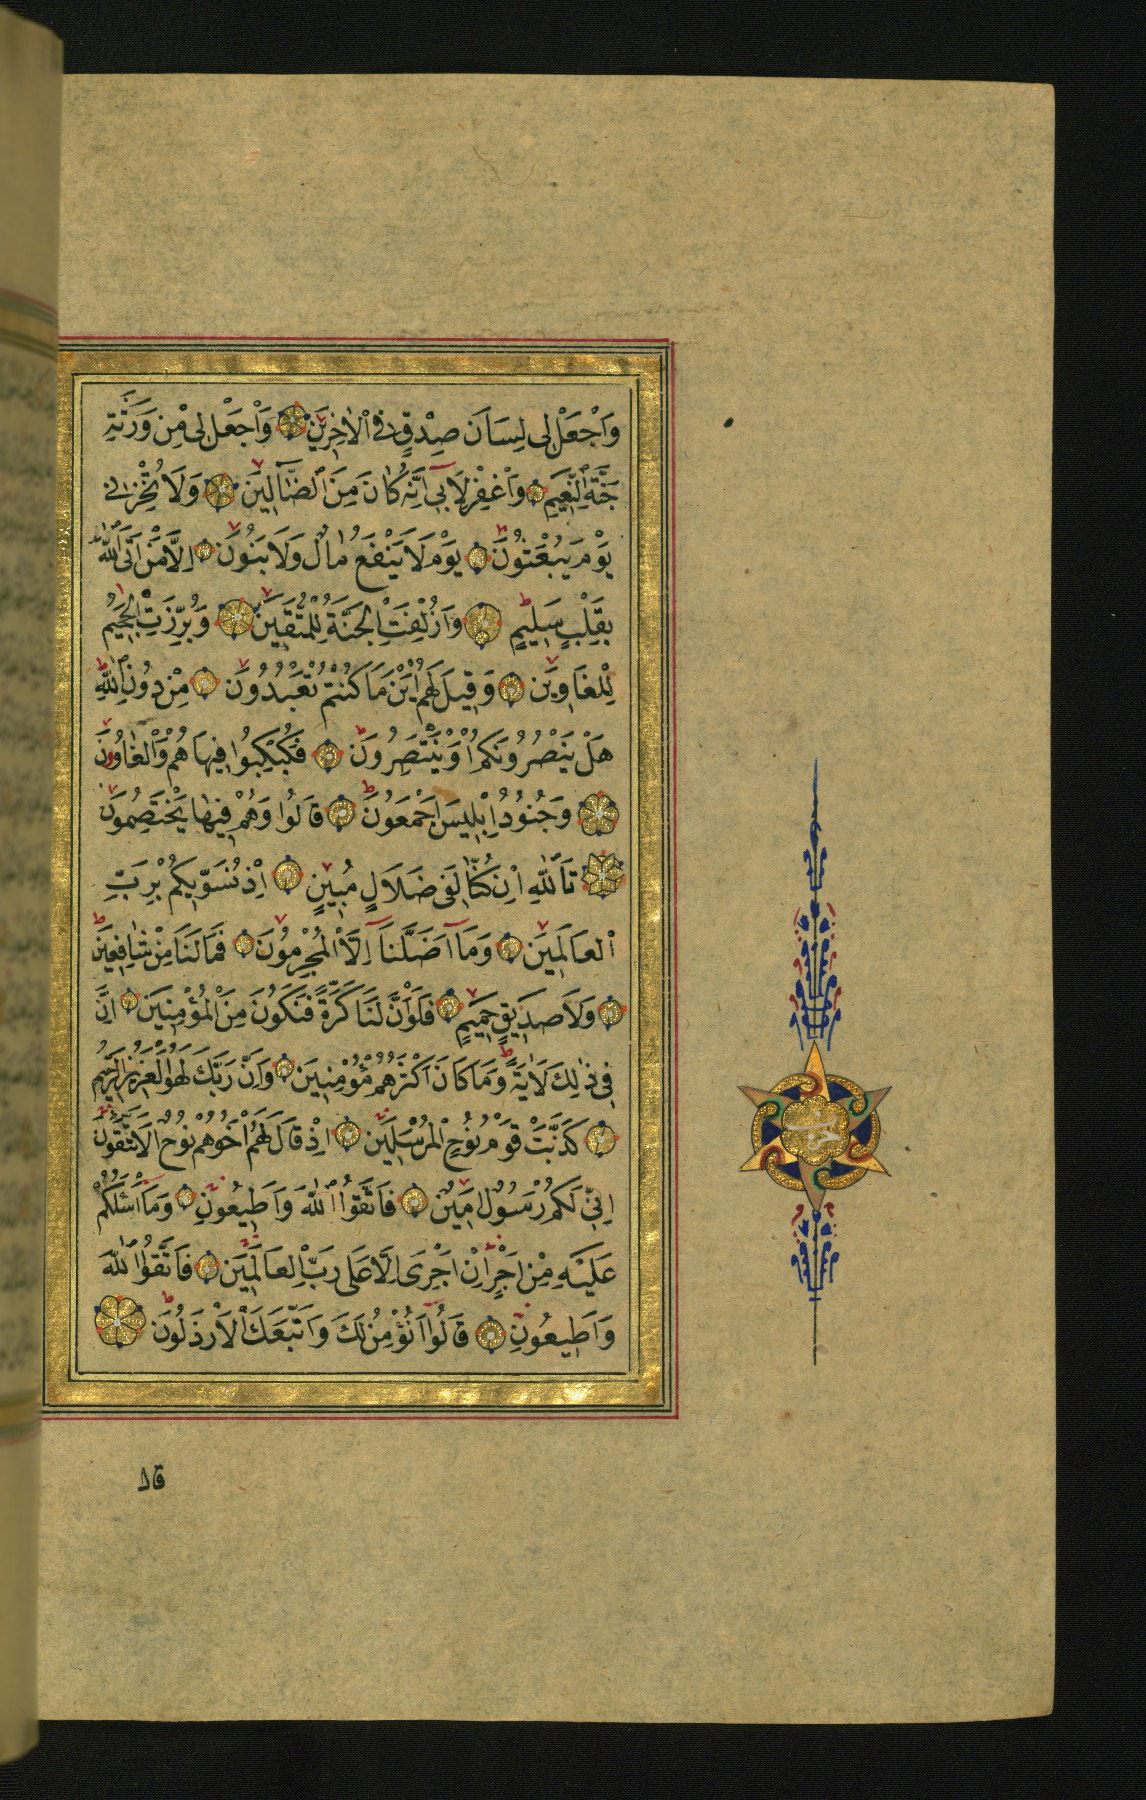 وَاجْعَلْ لِى لِسَانَ صِدْقٍ فِى الْاٰخِرِينَ وَاجْعَلْ لِى مِنْ وَرَثَةِ
جَنَّةِ النَّعِيمِ وَاغْفِرْ لِاَبِى اِنَّهُ كَانَ مِنَ الضَّٓالِّينَ وَلَا تُخْزِنِى
يَوْمَ يُبْعَثُونَ يَوْمَ لَا يَنْفَعُ مَالٌ وَلَا بَنُونَ اِلَّا مَنْ اَتَى اللّٰهَ
بِقَلْبٍ سَلِيمٍ وَاُزْلِفَتِ الْجَنَّةُ لِلْمُتَّقِينَ وَبُرِّزَتِ الْجَحِيمُ
لِلْغَاوِينَ وَقِيلَ لَهُمْ اَيْنَ مَا كُنْتُمْ تَعْبُدُونَ مِنْ دُونِ اللّٰهِ
هَلْ يَنْصُرُونَكُمْ اَوْ يَنْتَصِرُونَ فَكُبْكِبُوا فِيهَا هُمْ وَالْغَاوُونَ
وَجُنُودُ اِبْلِيسَ اَجْمَعُونَ قَالُوا وَهُمْ فِيهَا يَخْتَصِمُونَ
تَاللّٰهِ اِنْ كُنَّا لَفِى ضَلَالٍ مُبِينٍ اِذْ نُسَوِّيكُمْ بِرَبِّ
الْعَالَمِينَ وَمَٓا اَضَلَّنَٓا اِلَّا الْمُجْرِمُونَ فَمَا لَنَا مِنْ شَافِعِينَ
وَلَا صَدِيقٍ حَمِيمٍ فَلَوْ اَنَّ لَنَا كَرَّةً فَنَكُونَ مِنَ الْمُؤْمِنِينَ اِنَّ
فِى ذٰلِكَ لَاٰيَةً وَمَا كَانَ اَكْثَرُهُمْ مُؤْمِنِينَ وَاِنَّ رَبَّكَ لَهُوَ الْعَزِيزُ الرَّحِيمُ
كَذَّبَتْ قَوْمُ نُوحٍ الْمُرْسَلِينَ اِذْ قَالَ لَهُمْ اَخُوهُمْ نُوحٌ اَلَا تَتَّقُونَ
اِنِّى لَكُمْ رَسُولٌ اَمِينٌ فَاتَّقُوا اللّٰهَ وَاَطِيعُونِ وَمَٓا اَسْئَلُكُمْ
عَلَيْهِ مِنْ اَجْرٍ اِنْ اَجْرِىَ اِلَّا عَلٰى رَبِّ الْعَالَمِينَ فَاتَّقُوا اللّٰهَ
وَاَطِيعُونِ قَالُٓوا اَنُؤْمِنُ لَكَ وَاتَّبَعَكَ الْاَرْذَلُونَ
قال
حزب